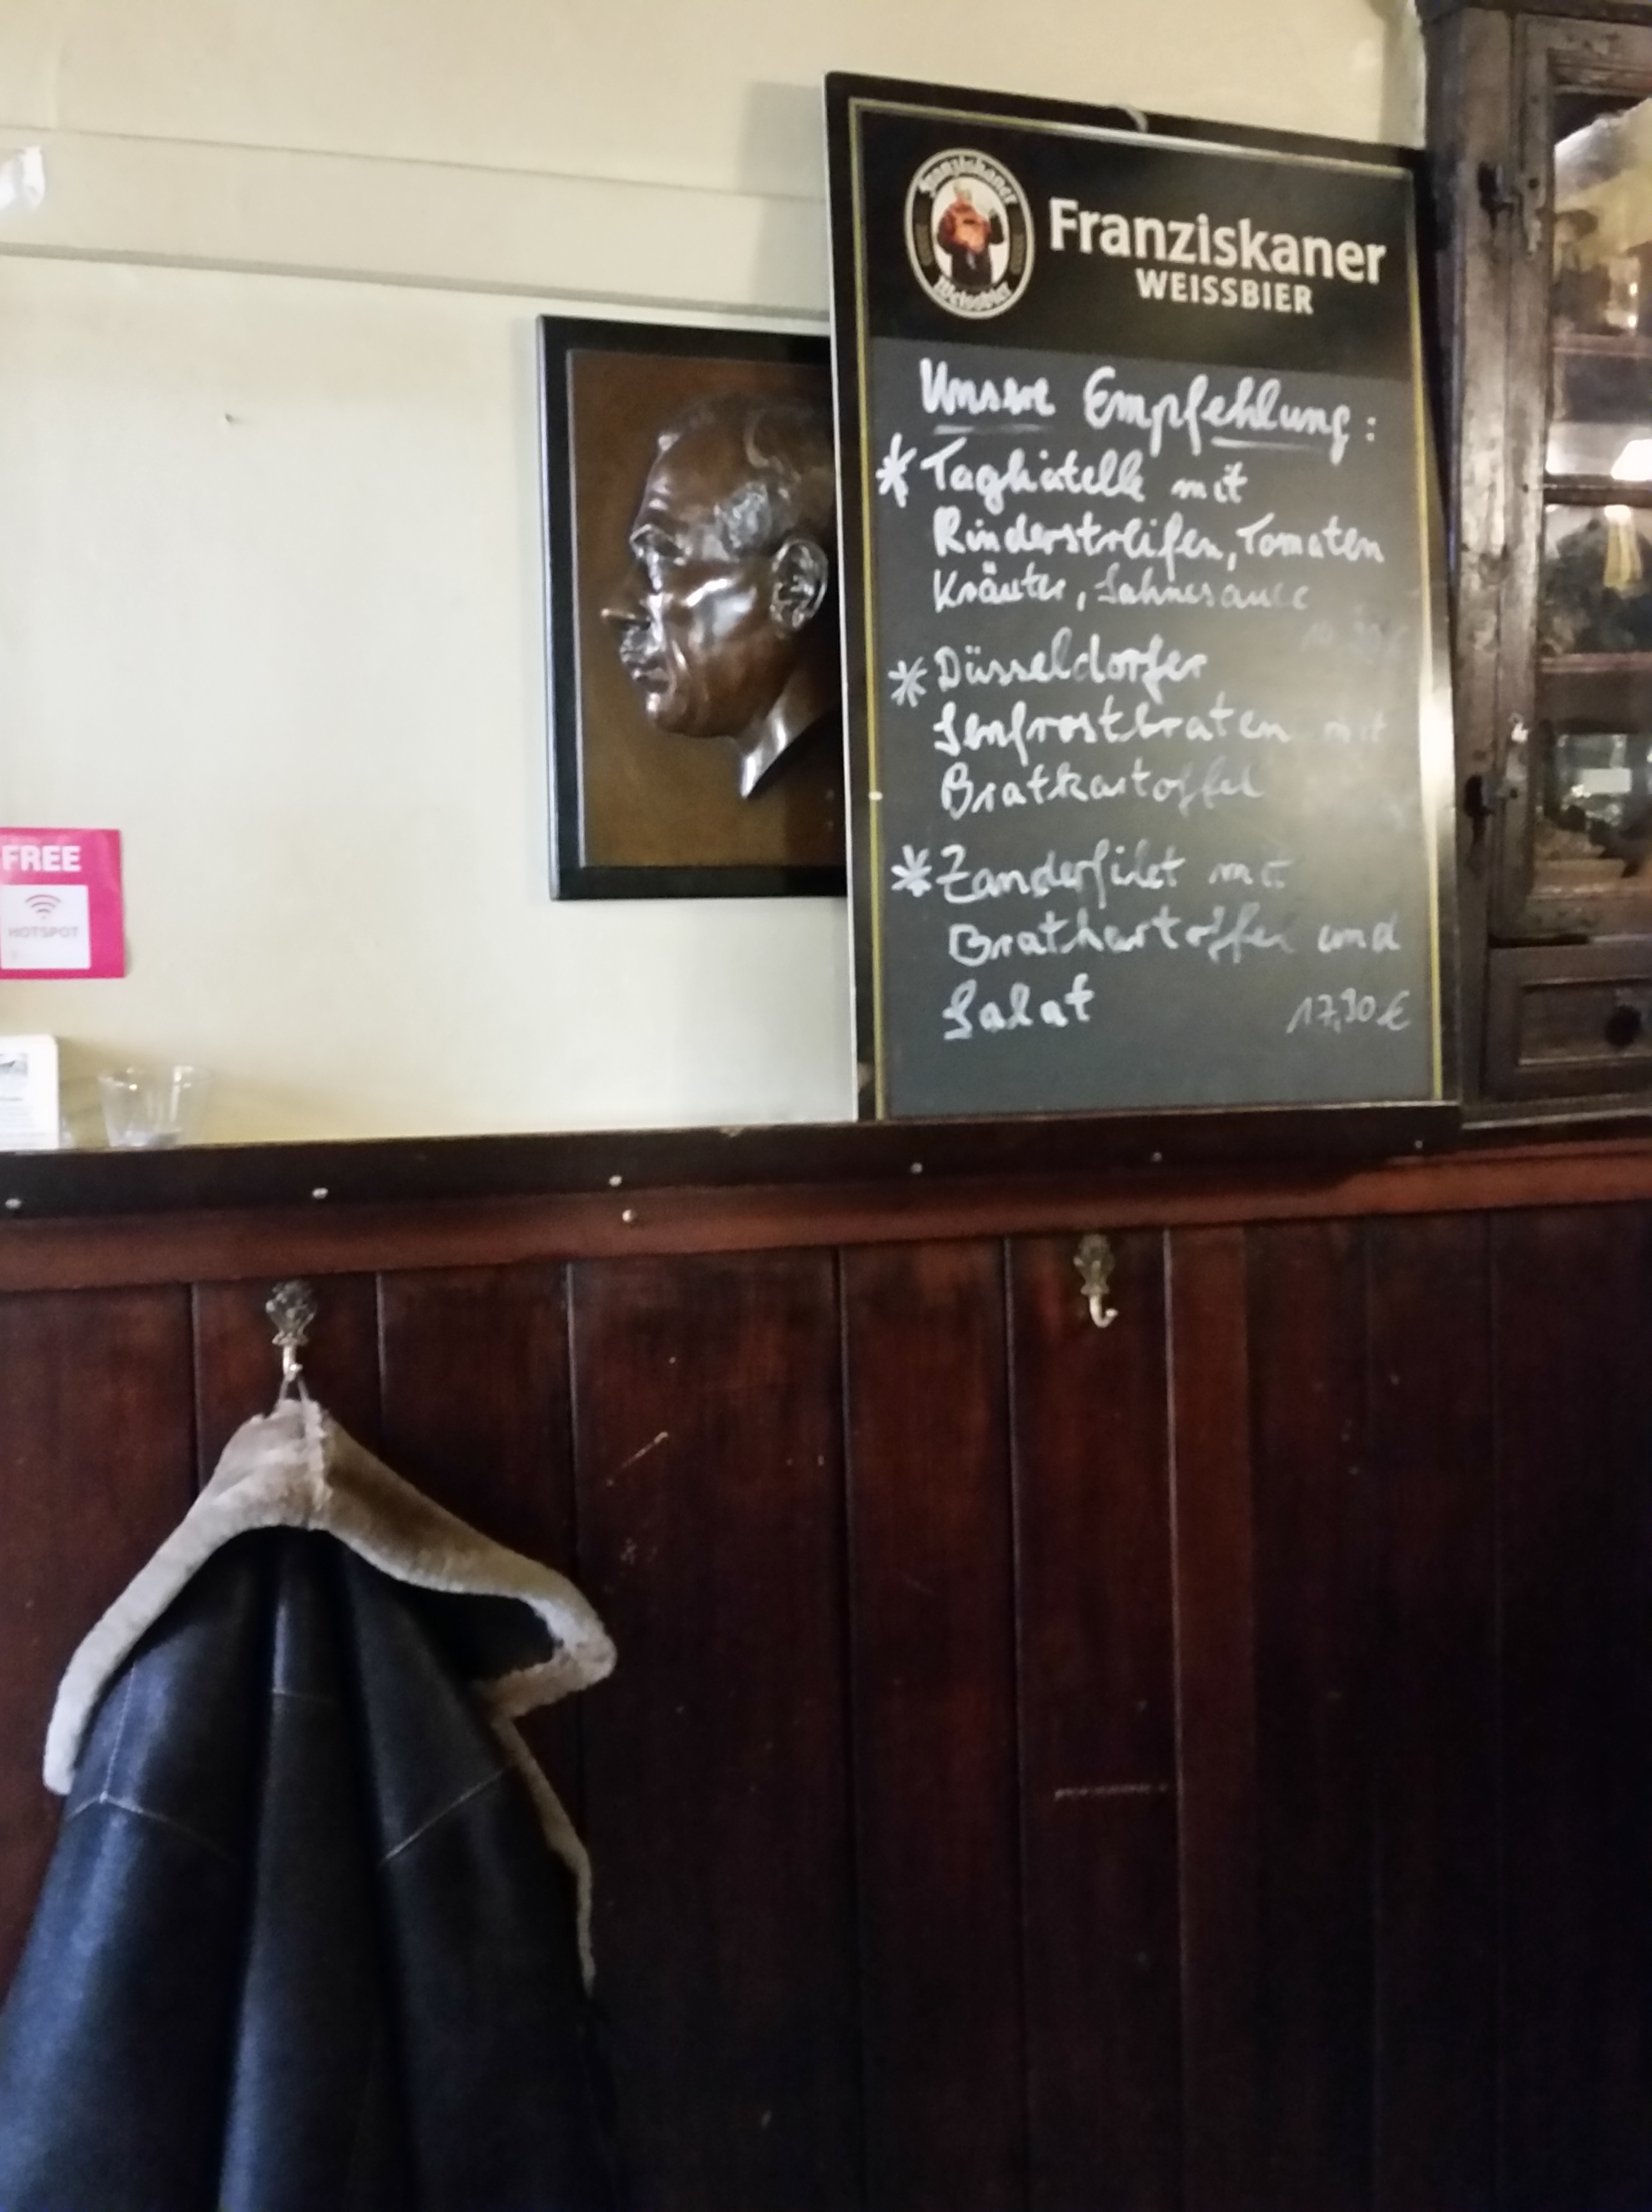 Franziskaner
Weissbier
Franziskaner
WEISSBIER
Unsere Empfehlung:
* Tagliatelle mit
Rinderstreifen, Tomaten
Kräuter, Sahnesauce
* Düsseldorfer
Senfrostbraten mit
Bratkartoffel
* Zanderfilet mit
Bratkartoffel und
Salat 17,90 €
FREE
HOTSPOT